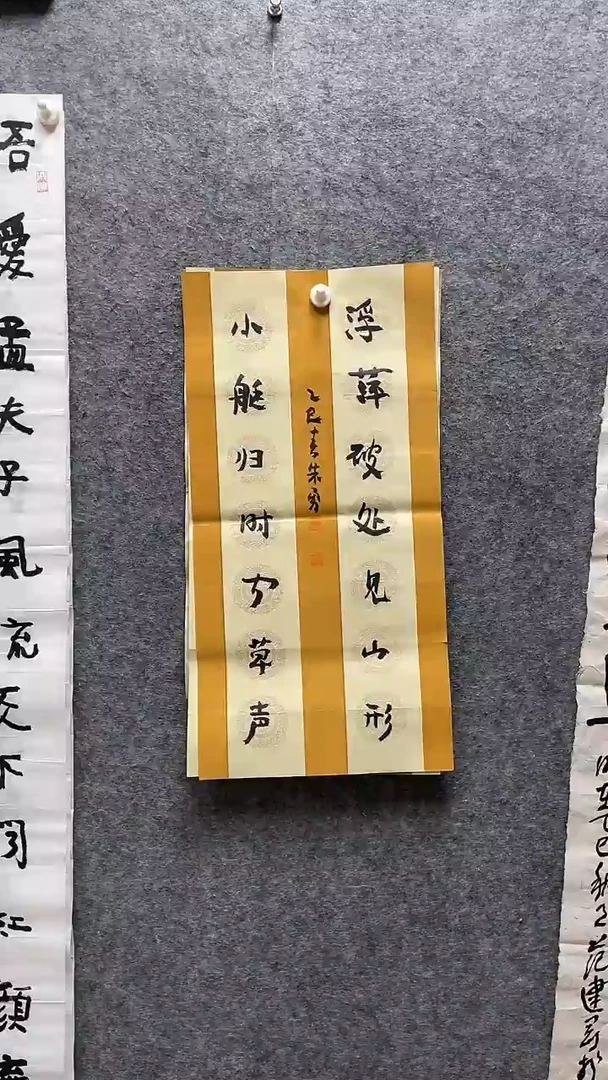 浮萍破处见山形
小艇归时闻草声
乙巳春朱勇
吾爱孟夫子风流天下闻红颜弃